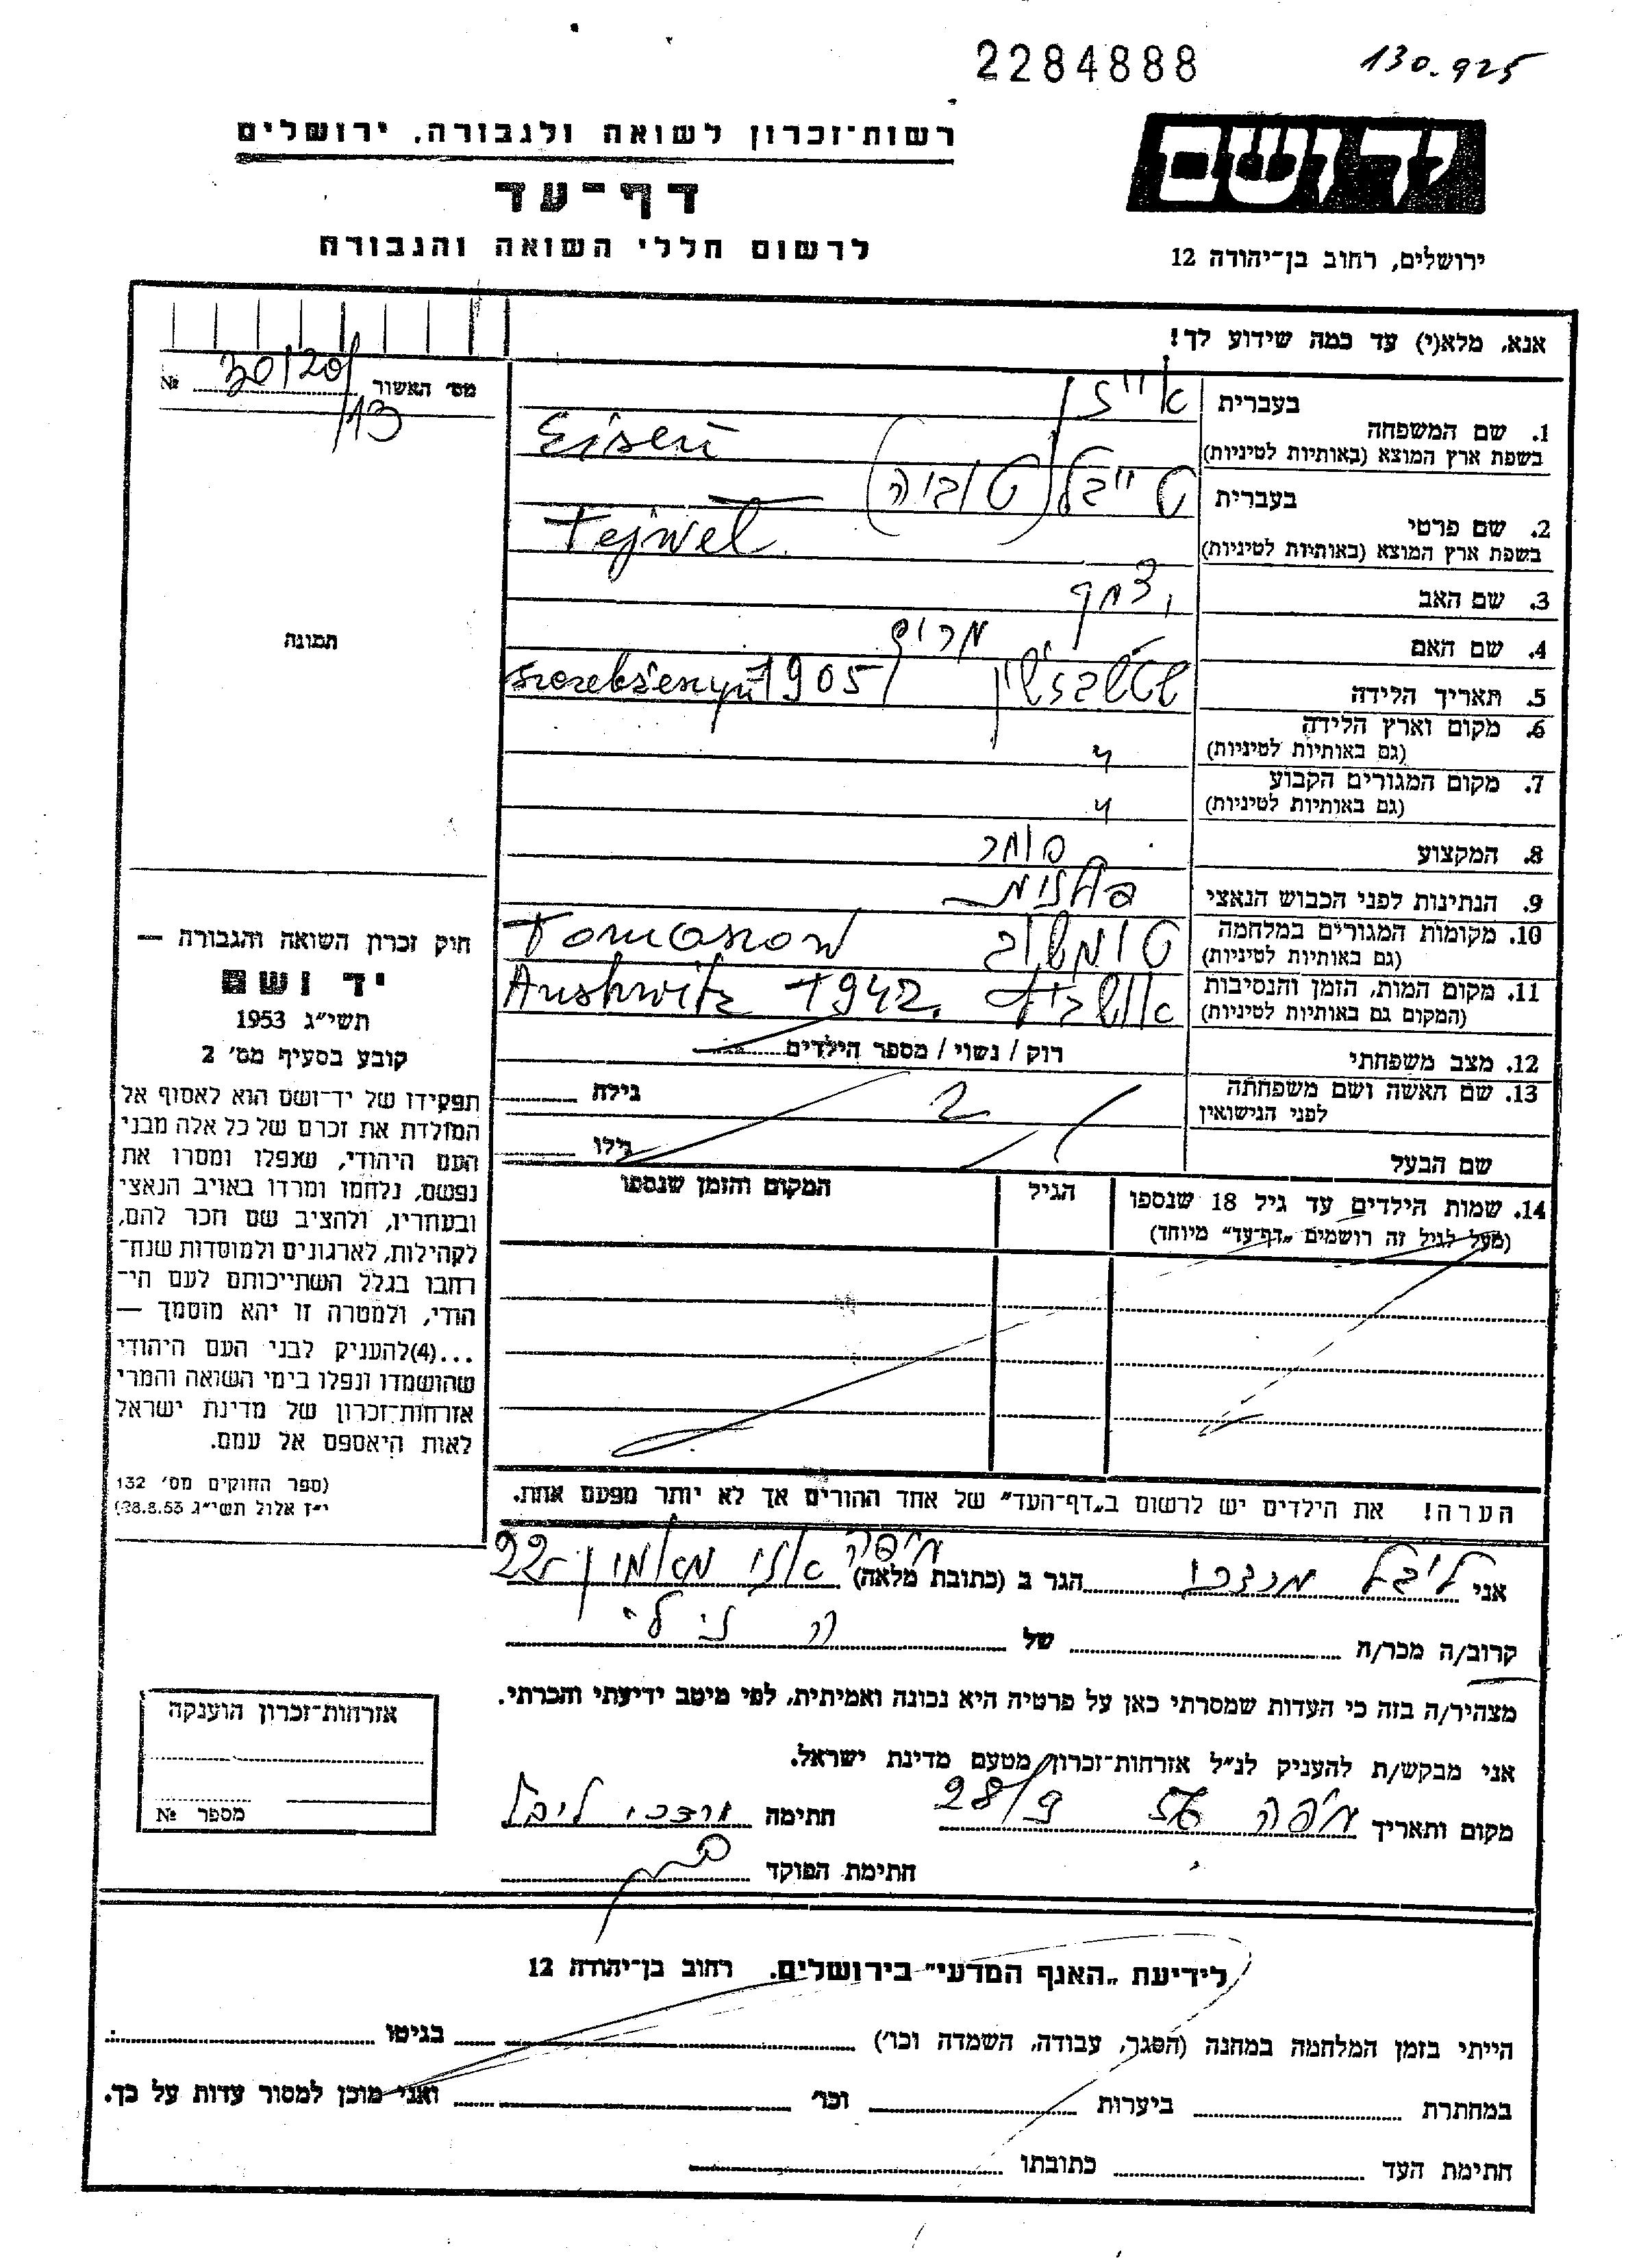 2284888
130.925
רשות־זכרון לשואה ולגבורה, ירושלים
יד ושם
דף־עד
לרשום חללי השואה והגבורה
ירושלים, רחוב בן־יהודה 12
אנא, מלא(י) עד כמה שידוע לך!
מס׳ האשור № 30/20/13
1. שם המשפחה בעברית
אייזן
בשפת ארץ המוצא (באותיות לטיניות)
Eisen
2. שם פרטי בעברית
טייבל (טוביה)
בשפת ארץ המוצא (באותיות לטיניות)
Tejwel
3. שם האב
4. שם האם מרים
5. תאריך הלידה 1905
6. מקום וארץ הלידה
(גם באותיות לטיניות)
7. מקום המגורים הקבוע
(גם באותיות לטיניות)
8. המקצוע סוחר
9. הנתינות לפני הכבוש הנאצי פולנית
10. מקומות המגורים במלחמה טומשוב Tomasow
(גם באותיות לטיניות)
11. מקום המות, הזמן והנסיבות אושביץ 1942. Aushwitz
(המקום גם באותיות לטיניות)
12. מצב משפחתי רוק / נשוי / מספר הילדים
13. שם האשה ושם משפחתה גילה
לפני הנישואין
2
שם הבעל גילו
14. שמות הילדים עד גיל 18 שנספו הגיל המקום והזמן שנספו
(מעל לגיל זה רושמים „דף־עד״ מיוחד)
הערה! את הילדים יש לרשום ב„דף־העד״ של אחד ההורים אך לא יותר מפעם אחת.
תמונה
חוק זכרון השואה והגבורה —
יד ושם
תשי״ג 1953
קובע בסעיף מס׳ 2
תפקידו של יד־ושם הוא לאסוף אל
המולדת את זכרם של כל אלה מבני
העם היהודי, שנפלו ומסרו את
נפשם, נלחמו ומרדו באויב הנאצי
ובעוזריו, ולהציב שם וזכר להם,
לקהילות, לארגונים ולמוסדות שנח־
רבו בגלל השתייכותם לעם הי־
הודי, ולמטרה זו יהא מוסמך —
...(4)להעניק לבני העם היהודי
שהושמדו ונפלו בימי השואה והמרי
אזרחות־זכרון של מדינת ישראל
לאות היאספם אל עמם.
(ספר החוקים מס׳ 132
י״ז אלול תשי״ג 28.8.53)
אני ליבל מרדכי הגר ב (כתובת מלאה) חיפה 22
קרוב/ה מכר/ה של הנ״ל
מצהיר/ה בזה כי העדות שמסרתי כאן על פרטיה היא נכונה ואמיתית, לפי מיטב ידיעתי והכרתי.
אני מבקש/ת להעניק לנ״ל אזרחות־זכרון מטעם מדינת ישראל.
מקום ותאריך חיפה 28/9 56 חתימה מרדכי ליבל
חתימת הפוקד
אזרחות־זכרון הוענקה
מספר №
לידיעת „האגף המדעי״ בירושלים. רחוב בן־יהודה 12
הייתי בזמן המלחמה במחנה (הסגר, עבודה, השמדה וכו׳) בגיטו
במחתרת ביערות וכו׳ ואני מוכן למסור עדות על כך.
חתימת העד כתובתו